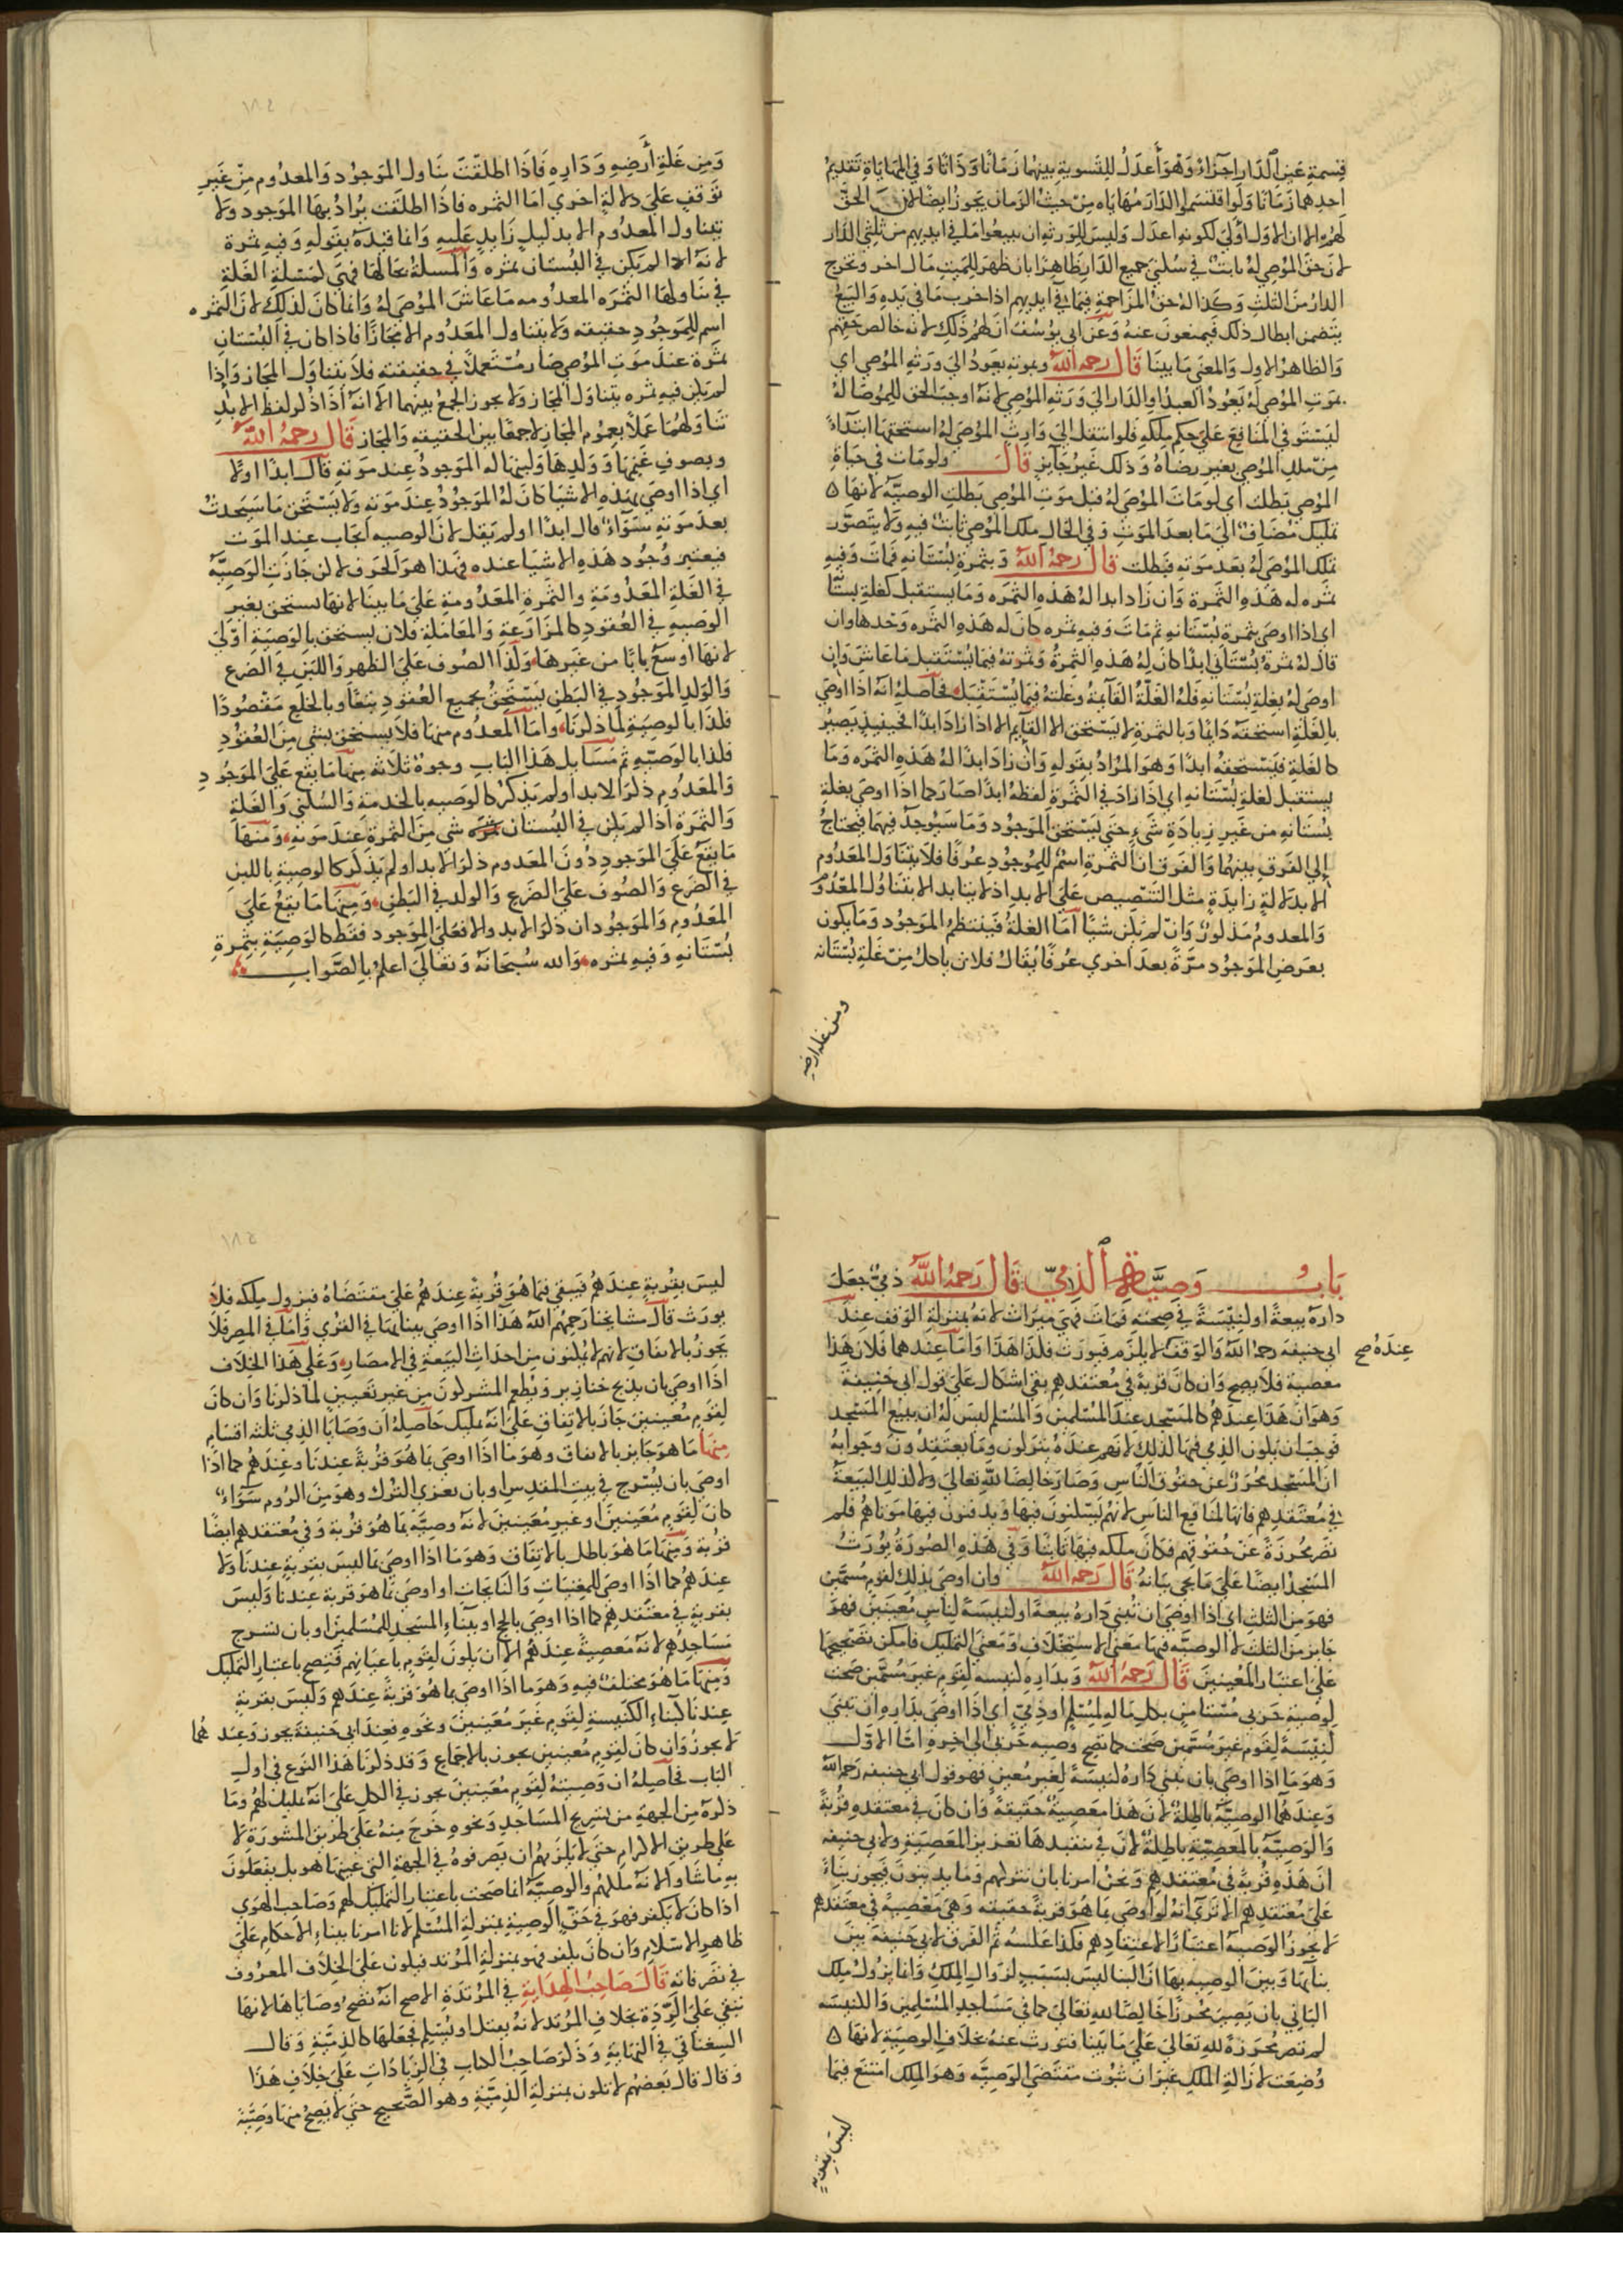 قسمة عين الدار اجزاء وهو أعدل للتسوية بينهما زمانا وذاتا وفي المهاياة تقديم
احدهما زمانا ولو اقتسموا الدار مهاياه من حيث الزمان يجوز ايضا لان الحق
لهم الا ان الاول اولي لكونه اعدل وليس للورثه ان يبيعوا ما في ايديهم من ثلثي الدار
لان حق الموصي له ثابت في سكني جميع الدار ظاهرا بان ظهر للميت مال اخر وتخرج
الدار من الثلث وكذا له حق المزاحمة فيما في ايديهم اذا خرب ما في يده والبيع
يتضمن ابطال ذلك فيمنعون عنه وعن ابي يوسف ان لهم ذلك لانه خالص حقهم
والظاهر الاول والمعني ما بينا قال رحمه الله وبموته يعود الي ورثه الموصي اي
بموت الموصي له يعود العبد او الدار الي ورثه الموصي لانه اوجب الحق للموصا له
ليستوفي المنافع علي حكم ملكه فلو انتقل الي وارث الموصي له استحقها ابتداء
من ملك الموصي بغير رضاه وذلك غير جايز قال ولو مات في حياة
الموصي بطلت اي لو مات الموصي له قبل موت الموصي بطلت الوصيه لانها ٥
تمليك مضاف الي ما بعد الموت وفي الحال ملك الموصي ثابت فيه ولا يتصور
تملك الموصي له بعد موته فبطلت قال رحمه الله وبثمرة بستانه فمات وفيه
ثمره له هذه الثمرة وان زاد ابدا له هذه الثمره وما يستقبل كغلة بستانه
اي اذا اوصي بثمرة بستانه ثم مات وفيه ثمره كان له هذه الثمره وحدها وان
قال له ثمرة بستاني ابدا كان له هذه الثمرة وثمرته فيما يستقبل ما عاش وان
اوصي له بغلة بستانه فله الغلة القايمة وغلته فيما يستقبل فحاصله انه اذا اوصي
بالغلة استحقه دايما وبالثمرة لا يستحق الا القايم الا اذا زاد ابدا فحينيذ يصير
كالغلة فيستحقه ابدا وهو المراد بقوله وان زاد ابدا له هذه الثمره وما
يستقبل كغلة بستانه اي اذا زاد في الثمرة لفظه ابدا صار كما اذا اوصي بغلة
بستانه من غير زيادة شيء حتي يستحق الموجود وما سيوجد فيهما فيحتاج
إلي الفرق بينهما والفرق ان الثمرة اسم للموجود عرفا فلا يتناول المعدوم
الا بدلالة زايدة مثل التنصيص علي الابد اذ لا يتابد الا بتناول المعدوم
والمعدوم مذكور وان لم يكن شيا اما الغلة فينتظم الموجود وما يكون
بعرض الموجود مرة بعد اخري عرفا يقال فلان ياكل من غلة بستانه
ومن غلة ارضه
ومن غلة أرضه وداره فاذا اطلقت تناول الموجود والمعدوم من غير
توقف علي دلالة اخري اما الثمره فاذا اطلقت يراد بها الموجود ولا
يتناول المعدوم الا بدليل زايد عليه وانما قيده بقوله وفيه ثمرة
لانه اذا لم يكن في البستان ثمره والمسلة بحالها فهي كمسلة الغلة
في تناولها الثمره المعدومه ما عاش الموصي له وانما كان كذلك لان الثمره
اسم للموجود حقيقته ولا يتناول المعدوم الا مجازا فاذا كان في البستان
ثمرة عند موت الموصي صار مستعملا في حقيقته فلا يتناول المجاز واذا
لم يكن فيه ثمره يتناول المجاز ولا يجوز الجمع بينهما الا انه اذا ذكر لفظ الابد
تناولهما عملا بعموم المجاز لا جمعا بين الحقيقه والمجاز قال رحمه الله
وبصوف غنمها وولدها ولبنها له الموجود عند موته قال ابدا اولا
اي اذا اوصي بهذه الاشيا كان له الموجود عند موته ولا يستحق ما سيحدث
بعد موته سواء قال ابدا او لم يقل لان الوصيه ايجاب عند الموت
فيعتبر وجود هذه الاشيا عنده فهذا هو الحرف لكن جازت الوصية
في الغلة المعدومة والثمرة المعدومة علي ما بينا لانها تستحق بغير
الوصيه في العقود كالمزارعة والمعاملة فلان يستحق بالوصية اولي
لانها اوسع بابا من غيرها وكذا الصوف علي الظهر واللبن في الضرع
والولد الموجود في البطن يستحق بجميع العقود تبعا وبالخلع مقصودا
فكذا بالوصية لما ذكرنا واما المعدوم منها فلا يستحق بشي من العقود
فكذا بالوصيه ثم مسايل هذا الباب وجوه ثلاثه منها ما يقع علي الموجود
والمعدوم ذكر الابد او لم يذكر كالوصيه بالخدمة والسكني والغلة
والثمرة اذا لم يكن في البستان ثمره شي من الثمرة عند موته ومنها
ما يقع علي الموجود دون المعدوم ذكر الابد او لم يذكر كالوصية باللبن
في الضرع والصوف علي الضرع والولد في البطن ومنها ما يقع علي
المعدوم والموجود ان ذكر الابد والا فعلي الموجود فقط كالوصية بثمرة
بستانه وفيه ثمره والله سبحانه وتعالي اعلم بالصواب
باب وصية الذمي قال رحمه الله ذمي جعل
داره بيعة او كنيسة في صحته فمات فهي ميراث لانه بمنزلة الوقف عند
ابي حنيفه رحمه الله والوقف لا يلزم فيورث فكذا هذا واما عندهما فلان هذا
عنده صح
معصية فلا يصح وان كان قربة في معتقدهم بقي اشكال علي قول ابي حنيفة
وهو ان هذا عندهم كالمسجد عند المسلمين والمسلم ليس له ان يبيع المسجد
فوجب ان يكون الذمي فيها كذلك لانهم عنده يتركون وما يعتقدون وجوابه
ان المسجد محرز عن حقوق الناس وصار خالصا لله تعالي ولا كذلك البيعة
في معتقدهم فانها لمنافع الناس لانهم يسكنون فيها ويدفنون فيها موتاهم فلم
تصر محرزة عن حقوقهم فكان ملكه فيها ثابتا وفي هذه الصورة يورث
المسجد ايضا علي ما يجي بيانه قال رحمه الله وان اوصي بذلك لقوم مسمين
فهو من الثلث اي اذا اوصي ان تبني داره بيعة او كنيسة لناس معينين فهو
جايز من الثلث لان الوصيه فيها معني الاستخلاف ومعني التمليك فامكن تصحيحها
علي اعتبار المعينين قال رحمه الله وبداره كنيسه لقوم غير مسمين صحت
كوصية حربي مستامن بكل ماله لمسلم او ذمي اي اذا اوصي بداره ان تبني
كنيسة لقوم غير مسمين صحت كما تصح وصيه حربي الي اخره اما الاول
وهو ما اذا اوصي بان تبني داره كنيسة لغير معين فهو قول ابي حنيفه رحمه الله
وعندهما الوصية باطلة لان هذا معصية حقيقة وان كان في معتقده قربة
والوصية بالمعصية باطلة لان في تنفيذها تعزيز المعصية ولابي حنيفه
ان هذه قربة في معتقدهم ونحن امرنا بان نتركهم وما يدينون فيجوز بناء
علي معتقدهم الا تري انه لو اوصي بما هو قربة حقيقه وهي معصية في معتقدهم
لا يجوز الوصيه اعتبارا لاعتقادهم فكذا عكسه ثم الفرق لابي حنيفة بين
بنايها وبين الوصيه بها ان البنا ليس بسبب لزوال الملك وانما يزول ملك
الباني بان يصير محرزا خالصا لله تعالي كما في مساجد المسلمين والكنيسه
لم تصر محرزة لله تعالي علي ما بينا فتورث عنه بخلاف الوصية لانها ٥
وضعت لازالة الملك غير ان ثبوت مقتضي الوصيه وهو الملك امتنع فيما
ليس بقربة
ليس بقربة عندهم فيبقي فيما هو قربة عندهم علي مقتضاه فيزول ملكه فلا
يورث قال مشايخنا رحمهم الله هذا اذا اوصي ببنايها في القري واما في المصر فلا
يجوز بالاتفاق لانهم لا يمكنون من احداث البيعة في الامصار وعلي هذا الخلاف
اذا اوصي بان يذبح خنازير ويطعم المشركون من غير تعيين لما ذكرنا وان كان
لقوم معينين جاز بالاتفاق علي انه تمليك حاصله ان وصايا الذمي ثلث اقسام
منها ما هو جايز بالاتفاق وهو ما اذا اوصي بما هو قربة عندنا وعندهم كما اذا
اوصي بان يسرج في بيت المقدس او بان يغزي الترك وهو من الروم سواء
كان لقوم معينين او غير معينين لانه وصية بما هو قربة وفي معتقدهم ايضا
قربة ومنها ما هو باطل بالاتفاق وهو ما اذا اوصي بما ليس بقربة عندنا ولا
عندهم كما اذا اوصي للمغنيات والنايحات او اوصي بما هو قربة عندنا وليس
بقربة في معتقدهم كما اذا اوصي بالحج او ببناء المسجد للمسلمين او بان تسرج
مساجدهم لانه معصية عندهم الا ان يكون لقوم باعيانهم فتصح باعتبار التمليك
ومنها ما هو مختلف فيه وهو ما اذا اوصي بما هو قربة عندهم وليس بقربة
عندنا كبناء الكنيسة لقوم غير معينين ونحوه فعند ابي حنيفة يجوز وعندهما
لا يجوز وان كان لقوم معينين يجوز بالاجماع وقد ذكرنا هذا النوع في اول
الباب فحاصله ان وصيته لقوم معينين يجوز في الكل علي انه تمليك لهم وما
ذكره من الجهة من تسريج المساجد ونحوه خرج منه علي طريق المشورة لا
علي طريق الالزام حتي لا يلزمهم ان يصرفوه في الجهة التي عينها هو بل يفعلون
به ما شاوا لانه ملكهم والوصية انما صحت باعتبار التمليك لهم وصاحب الهوي
اذا كان لا يكفر فهو في حق الوصية بمنزلة المسلم لانا امرنا ببناء الاحكام علي
ظاهر الاسلام وان كان يكفر فهو بمنزلة المرتد فيكون علي الخلاف المعروف
في تصرفاته قال صاحب الهداية في المرتدة الاصح انه تصح وصاياها لانها
تبقي علي الردة بخلاف المرتد لانه يقتل او يسلم فجعلها كالذمية وقال
السغناقي في النهاية وذكر صاحب الكتاب في الزيادات علي خلاف هذا
وقال قال بعضهم لا تكون بمنزلة الذمية وهو الصحيح حتي لا يصح منها وصية